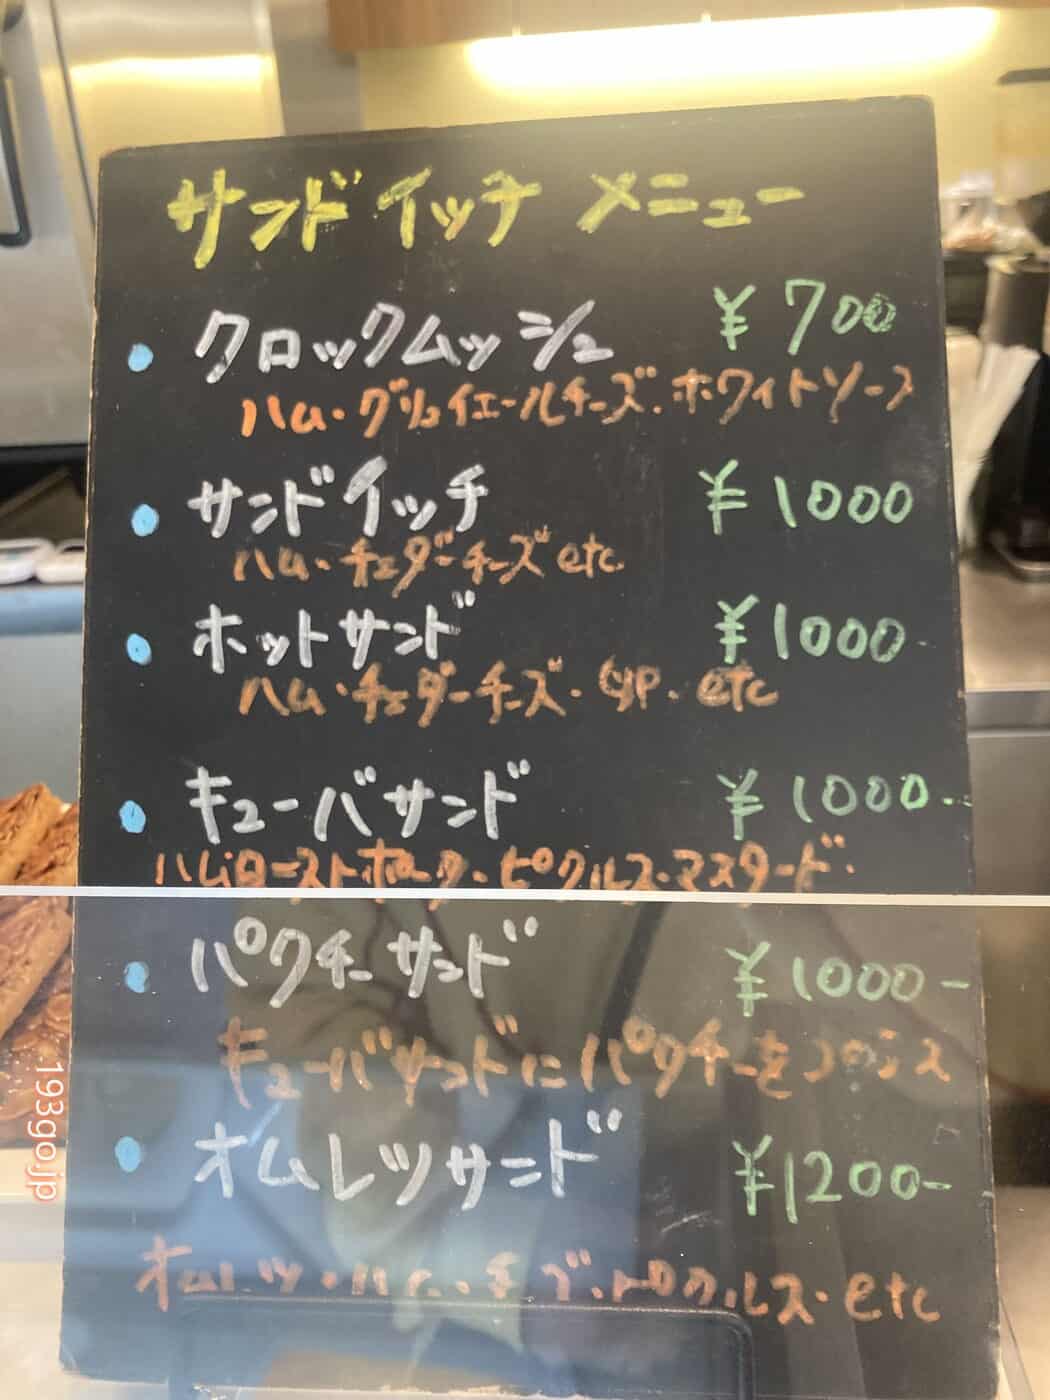 サンドイッチ メニュー
・クロックムッシュ ¥700
ハム・グリュイエールチーズ・ホワイトソース
・サンドイッチ ¥1000
ハム・チェダーチーズ etc
・ホットサンド ¥1000-
ハム・チェダーチーズ・ etc
・キューバサンド ¥1000-
ハム・ローストポーク・ピクルス・マスタード
・パクチーサンド ¥1000-
キューバサンドにパクチーを
・オムレツサンド ¥1200-
オムレツ・ハム・チーズ・ピクルス・etc
193go.jp